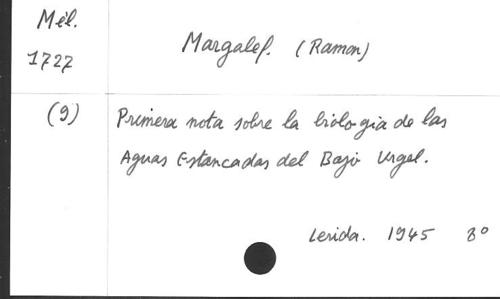 Mél.
1727
Margalef. (Ramon)
(9)
Primera nota sobre la biologia de las
Aguas Estancadas del Bajo Urgel.
Lerida. 1945 8º